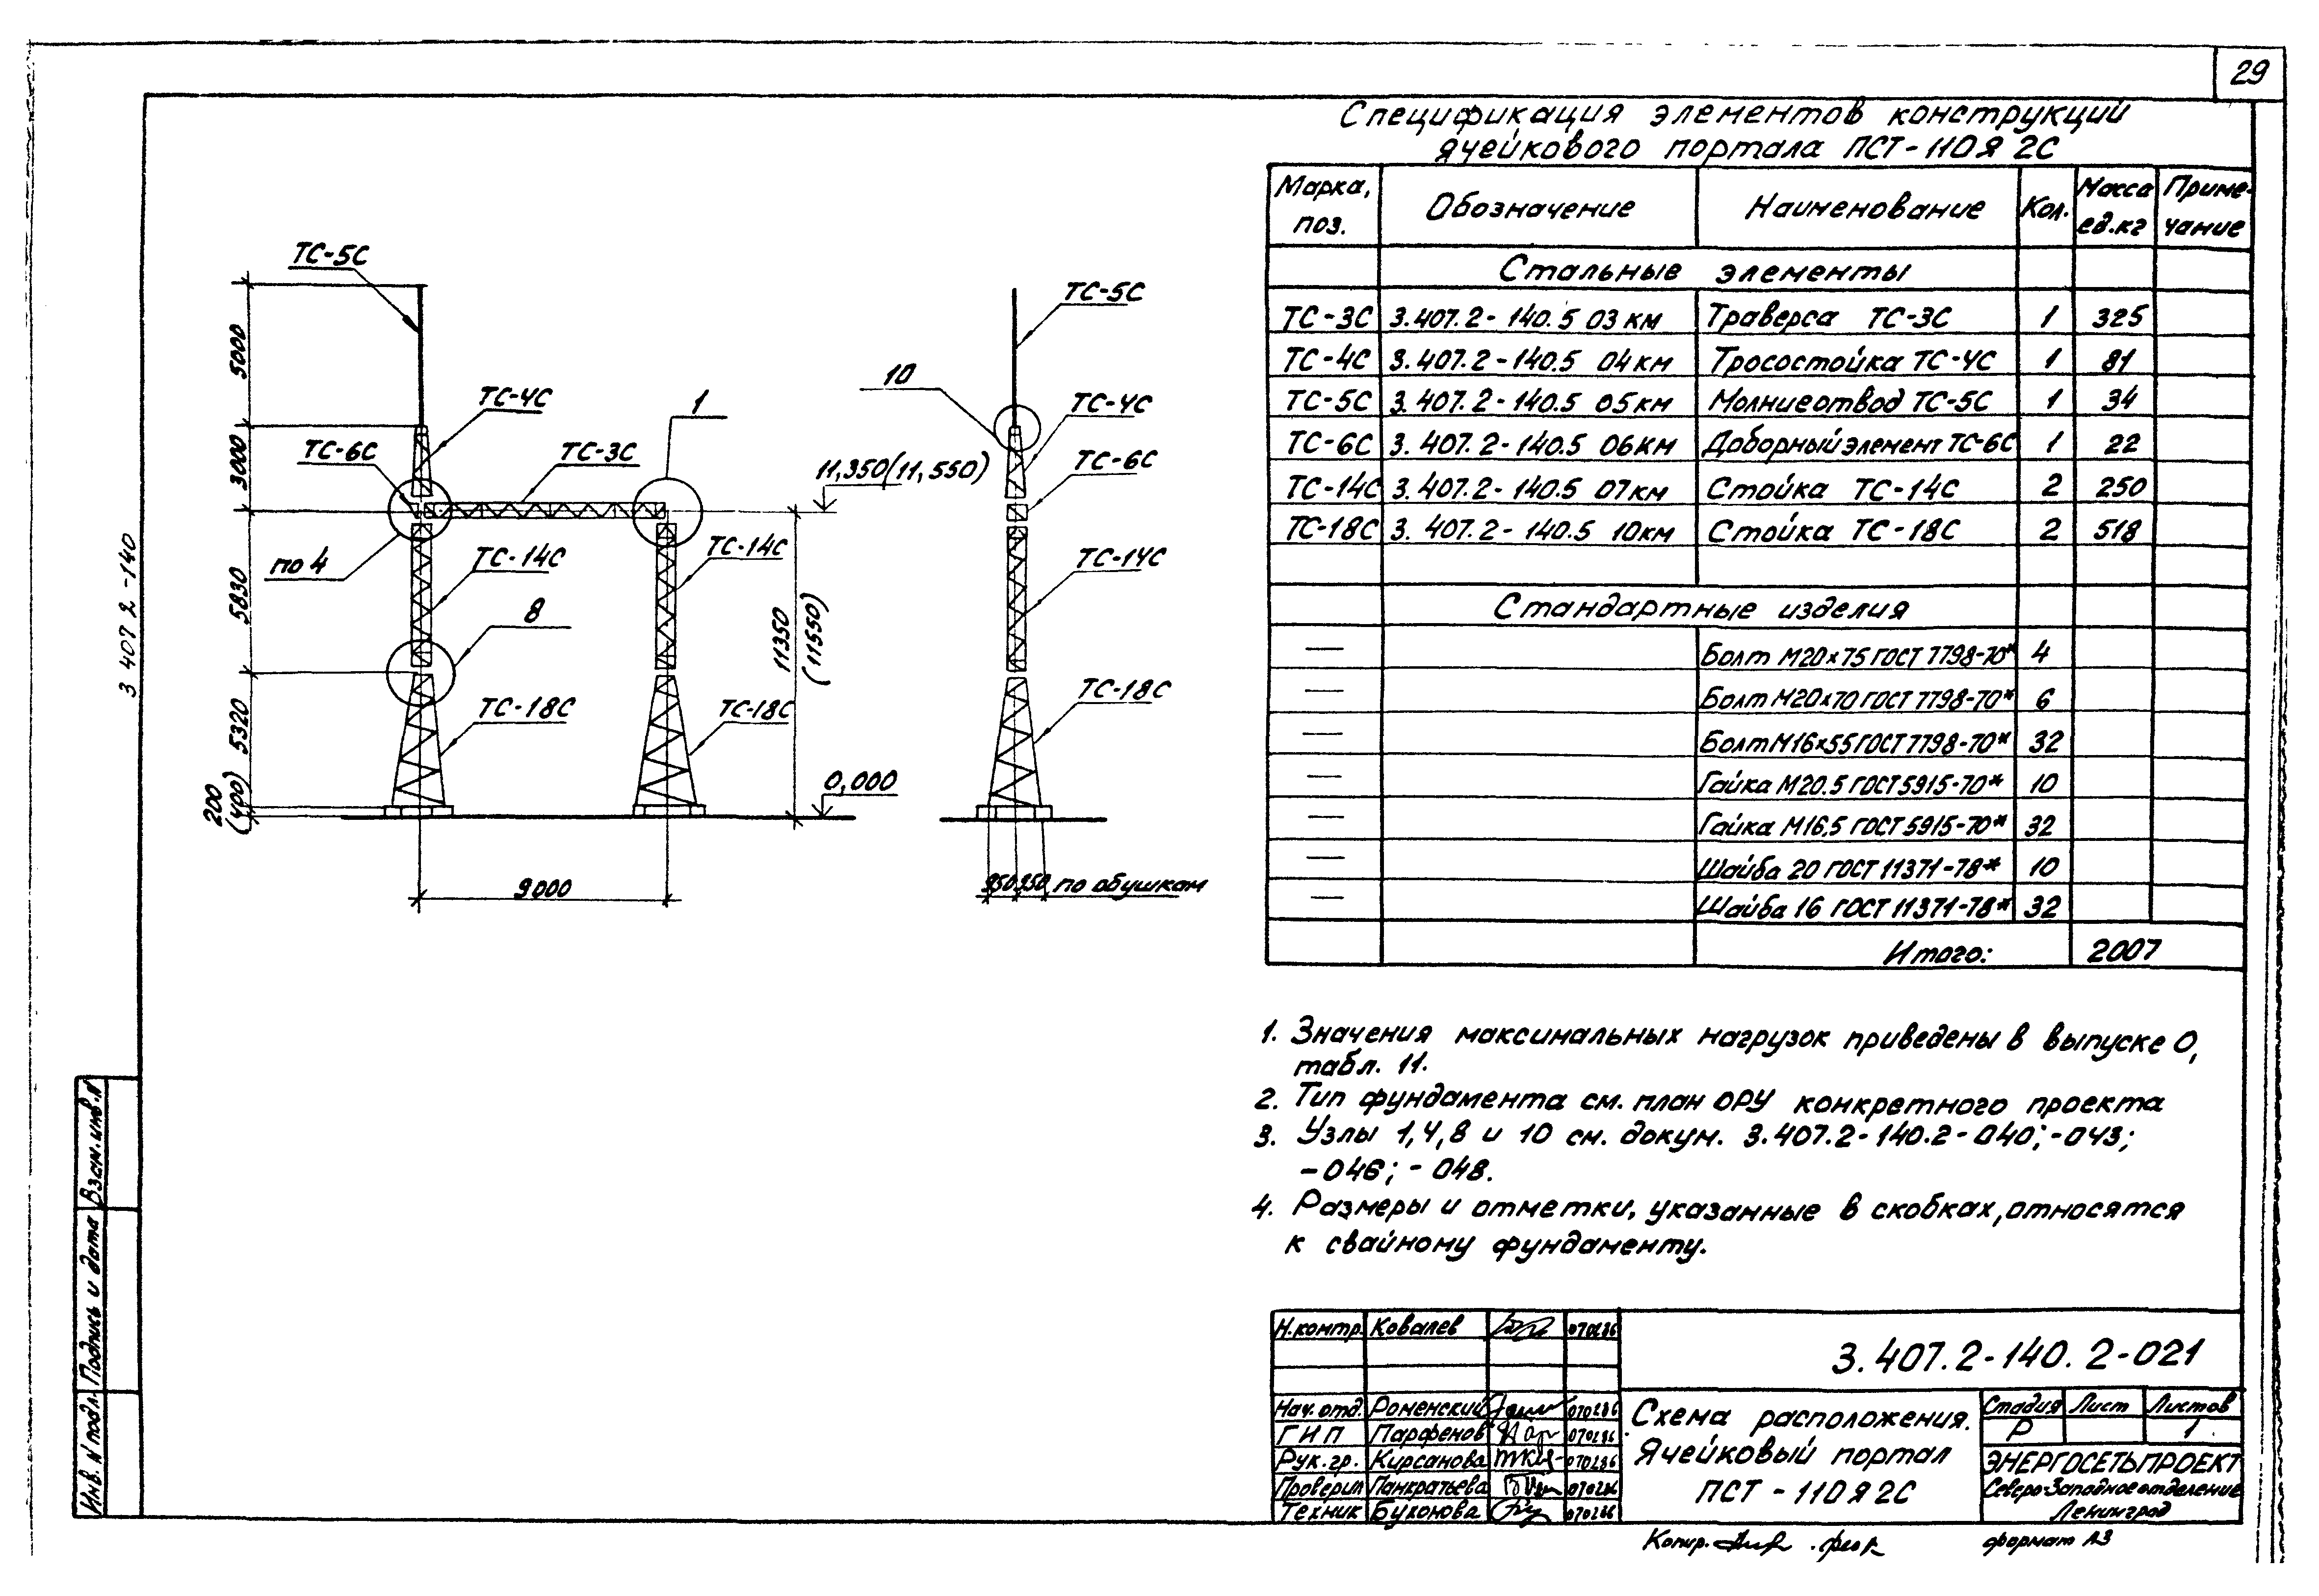 29
Спецификация элементов конструкций
ячейкового портала ПСТ-110Я2С
Марка, поз. Обозначение Наименование Кол. Масса ед.кг Примечание
Стальные элементы
ТС-3С 3.407.2-140.5 03км Траверса ТС-3С 1 325
ТС-4С 3.407.2-140.5 04км Тросостойка ТС-4С 1 81
ТС-5С 3.407.2-140.5 05км Молниеотвод ТС-5С 1 34
ТС-6С 3.407.2-140.5 06км Доборный элемент ТС-6С 1 22
ТС-14С 3.407.2-140.5 07км Стойка ТС-14С 2 250
ТС-18С 3.407.2-140.5 10км Стойка ТС-18С 2 518
Стандартные изделия
— Болт М20×75 ГОСТ 7798-70* 4
— Болт М20×70 ГОСТ 7798-70* 6
— Болт М16×55 ГОСТ 7798-70* 32
— Гайка М20.5 ГОСТ 5915-70* 10
— Гайка М16.5 ГОСТ 5915-70* 32
— Шайба 20 ГОСТ 11371-78* 10
— Шайба 16 ГОСТ 11371-78* 32
Итого: 2007
ТС-5С
ТС-4С
ТС-6С
ТС-3С
1
по 4
ТС-14С
ТС-14С
8
ТС-18С
ТС-18С
5000
3000
5830
5320
200
(400)
9000
11350
(11550)
11,350(11,550)
0,000
ТС-5С
10
ТС-4С
ТС-6С
ТС-14С
ТС-18С
350 350 по обушкам
3 407 2-140
1. Значения максимальных нагрузок приведены в выпуске 0,
табл. 11.
2. Тип фундамента см. план ОРУ конкретного проекта
3. Узлы 1,4,8 и 10 см. докум. 3.407.2-140.2-040;-043;
-046;-048.
4. Размеры и отметки, указанные в скобках, относятся
к свайному фундаменту.
Инв. № подл. Подпись и дата Взам. инв. №
Н.контр. Ковалев 070286
Нач. отд. Роменский 070286
ГИП Парфенов 070286
Рук.гр. Кирсанова 070286
Проверил Панкратьева 070286
Техник Буконова 070286
3.407.2-140.2-021
Схема расположения.
Ячейковый портал
ПСТ-110Я2С
Стадия Лист Листов
Р 1
ЭНЕРГОСЕТЬПРОЕКТ
Северо-Западное отделение
Ленинград
Копир.
формат А3